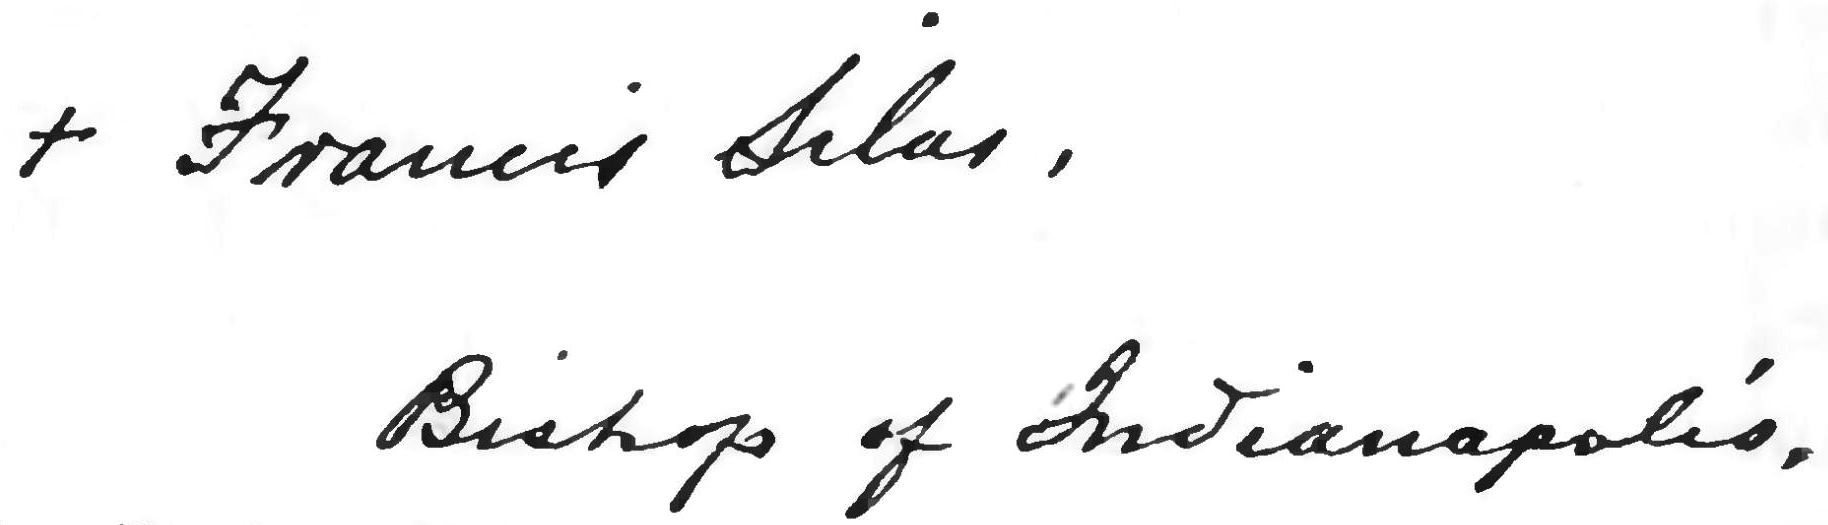 + Francis Silas,
Bishop of Indianapolis.